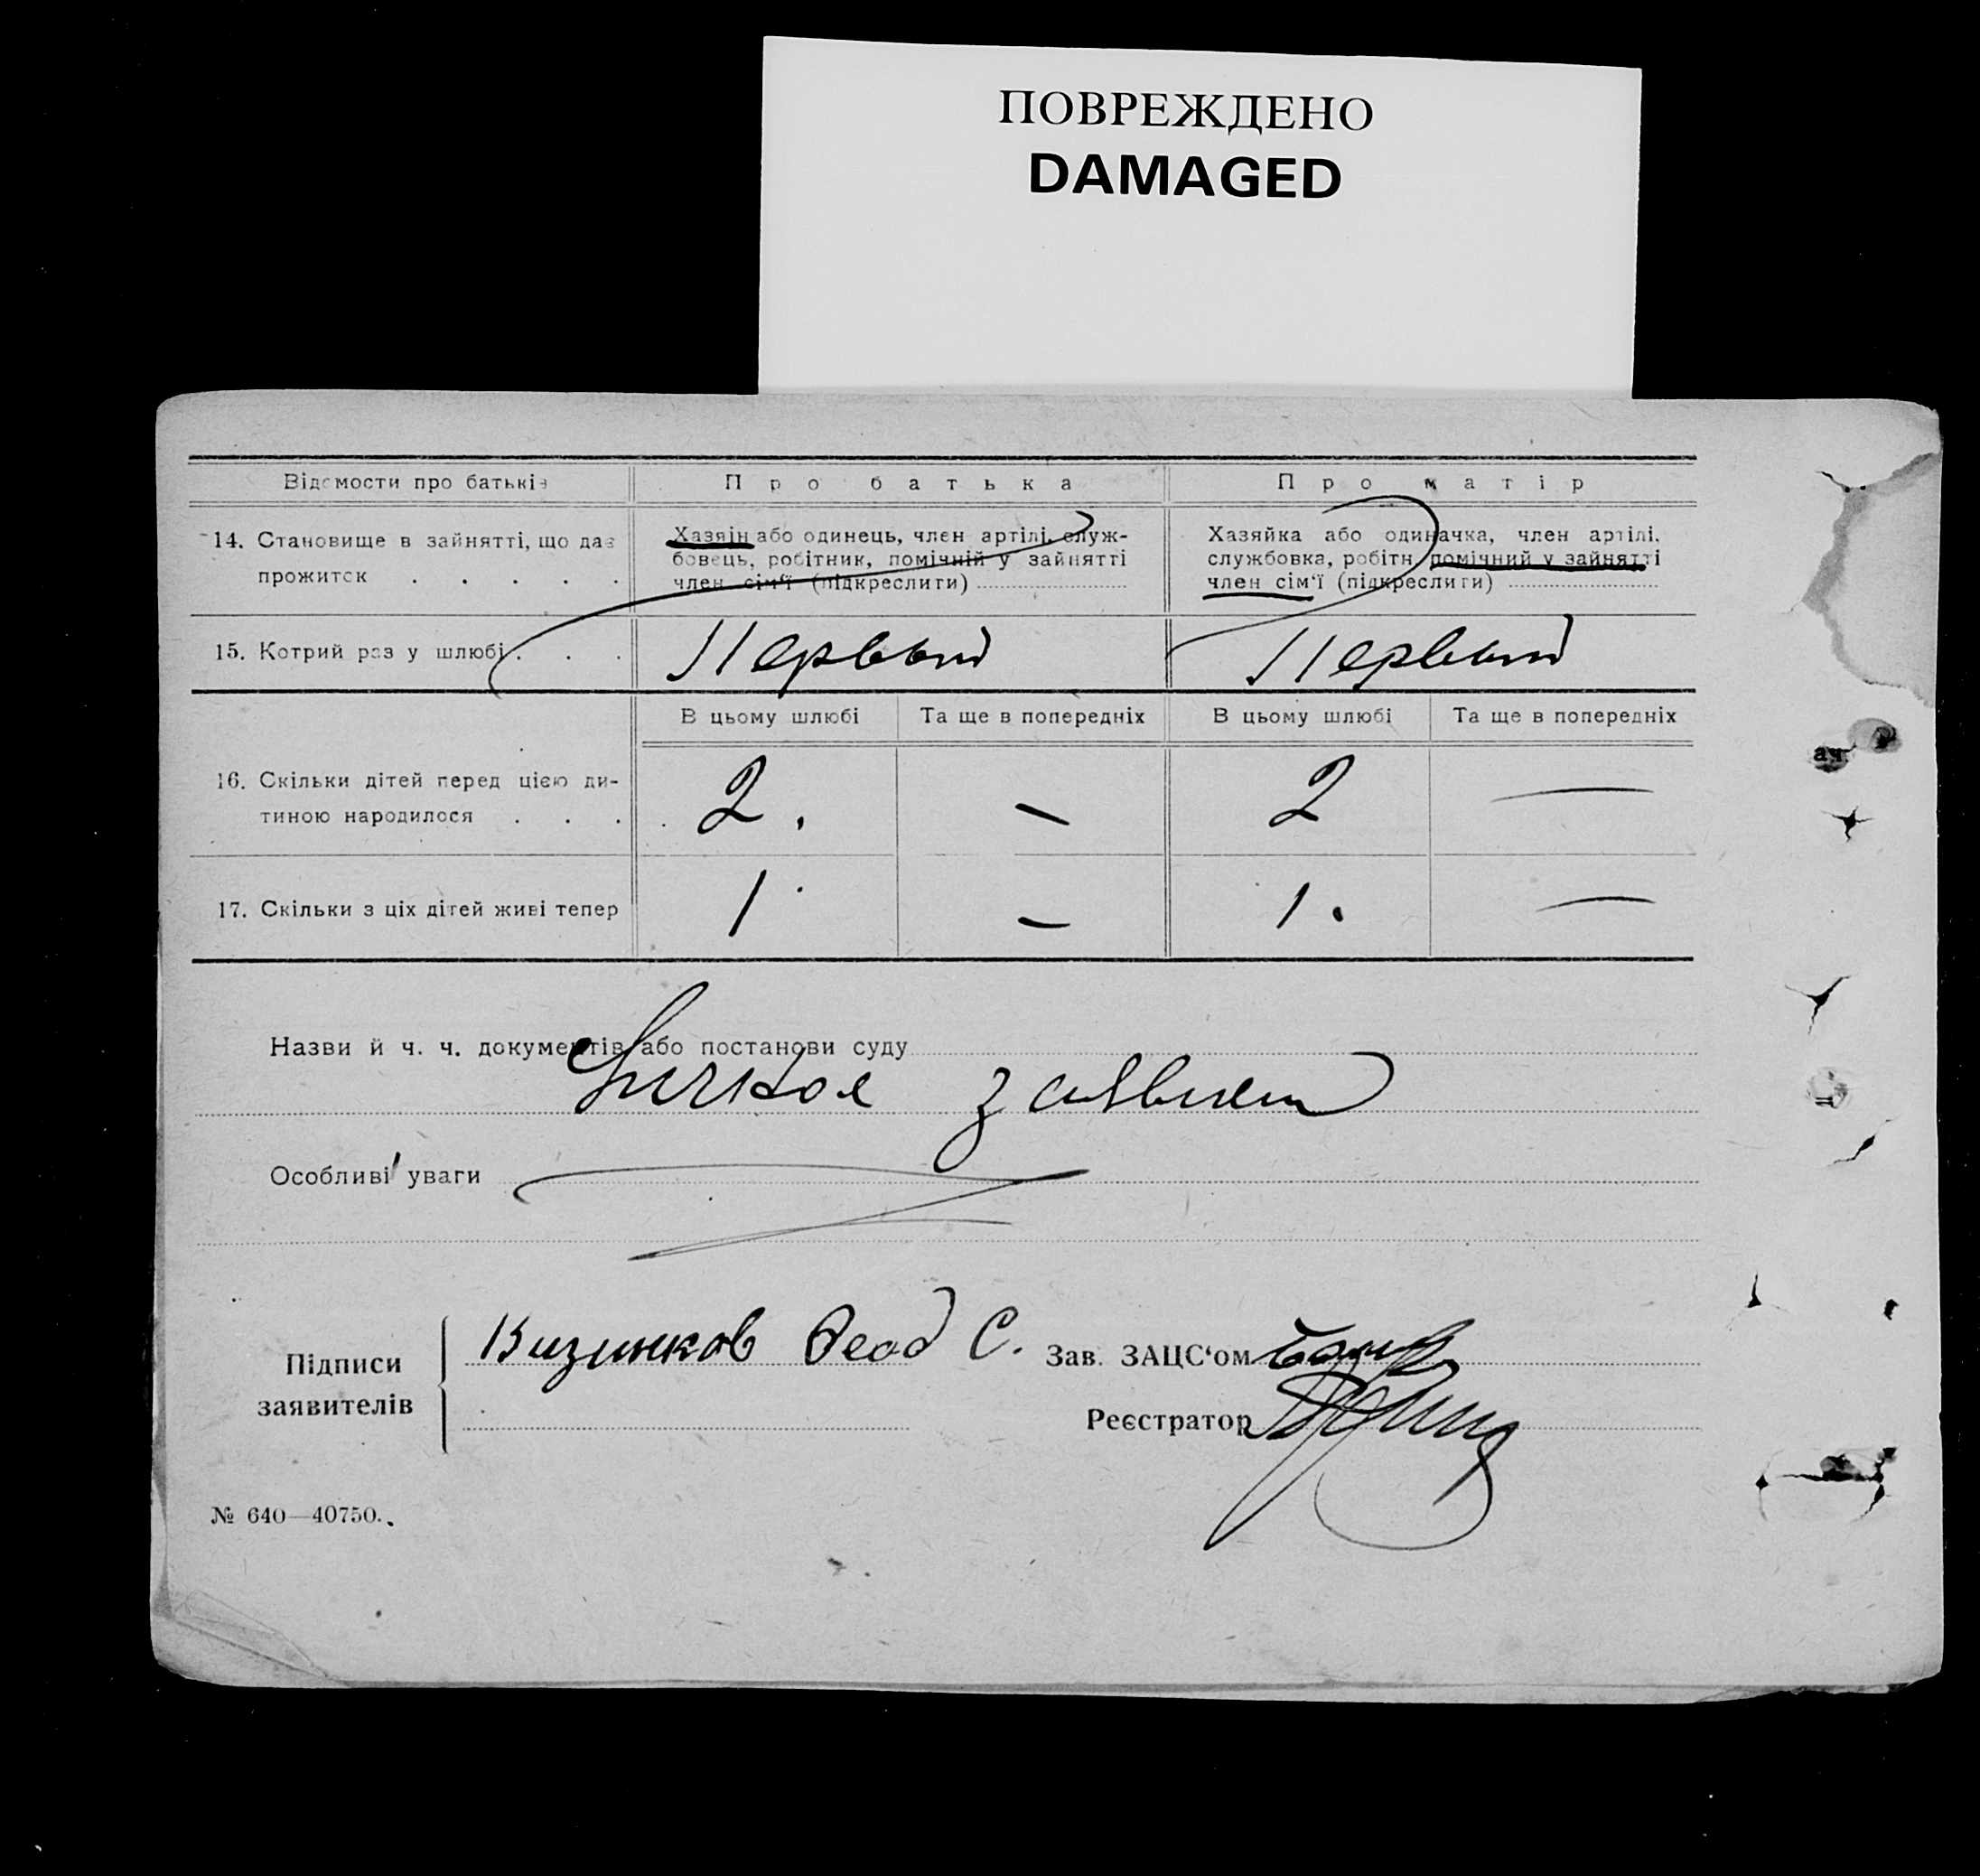 ПОВРЕЖДЕНО
DAMAGED
Відомости про батьків
Про батька
Про матір
14. Становище в зайнятті, що дає
прожиток . . . . .
Хазяін або одинець, член артілі, служ-
бовець, робітник, помічній у зайнятті
член сім'ї (підкреслити)
Хазяйка або одиначка, член артілі,
службовка, робітн помічний у зайнятті
член сім'ї (підкреслити)
15. Котрий раз у шлюбі . . .
Первый
Первый
В цьому шлюбі
Та ще в попередніх
В цьому шлюбі
Та ще в попередніх
16. Скільки дітей перед цією ди-
тиною народилося . . .
2.
–
2
—
17. Скільки з ціх дітей живі тепер
1
–
1.
—
Назви й ч. ч. документів або постанови суду
Особливі уваги
Підписи
заявителів
Визинков Феод С.
Зав. ЗАЦС'ом
Реєстратор
№ 640—40750.